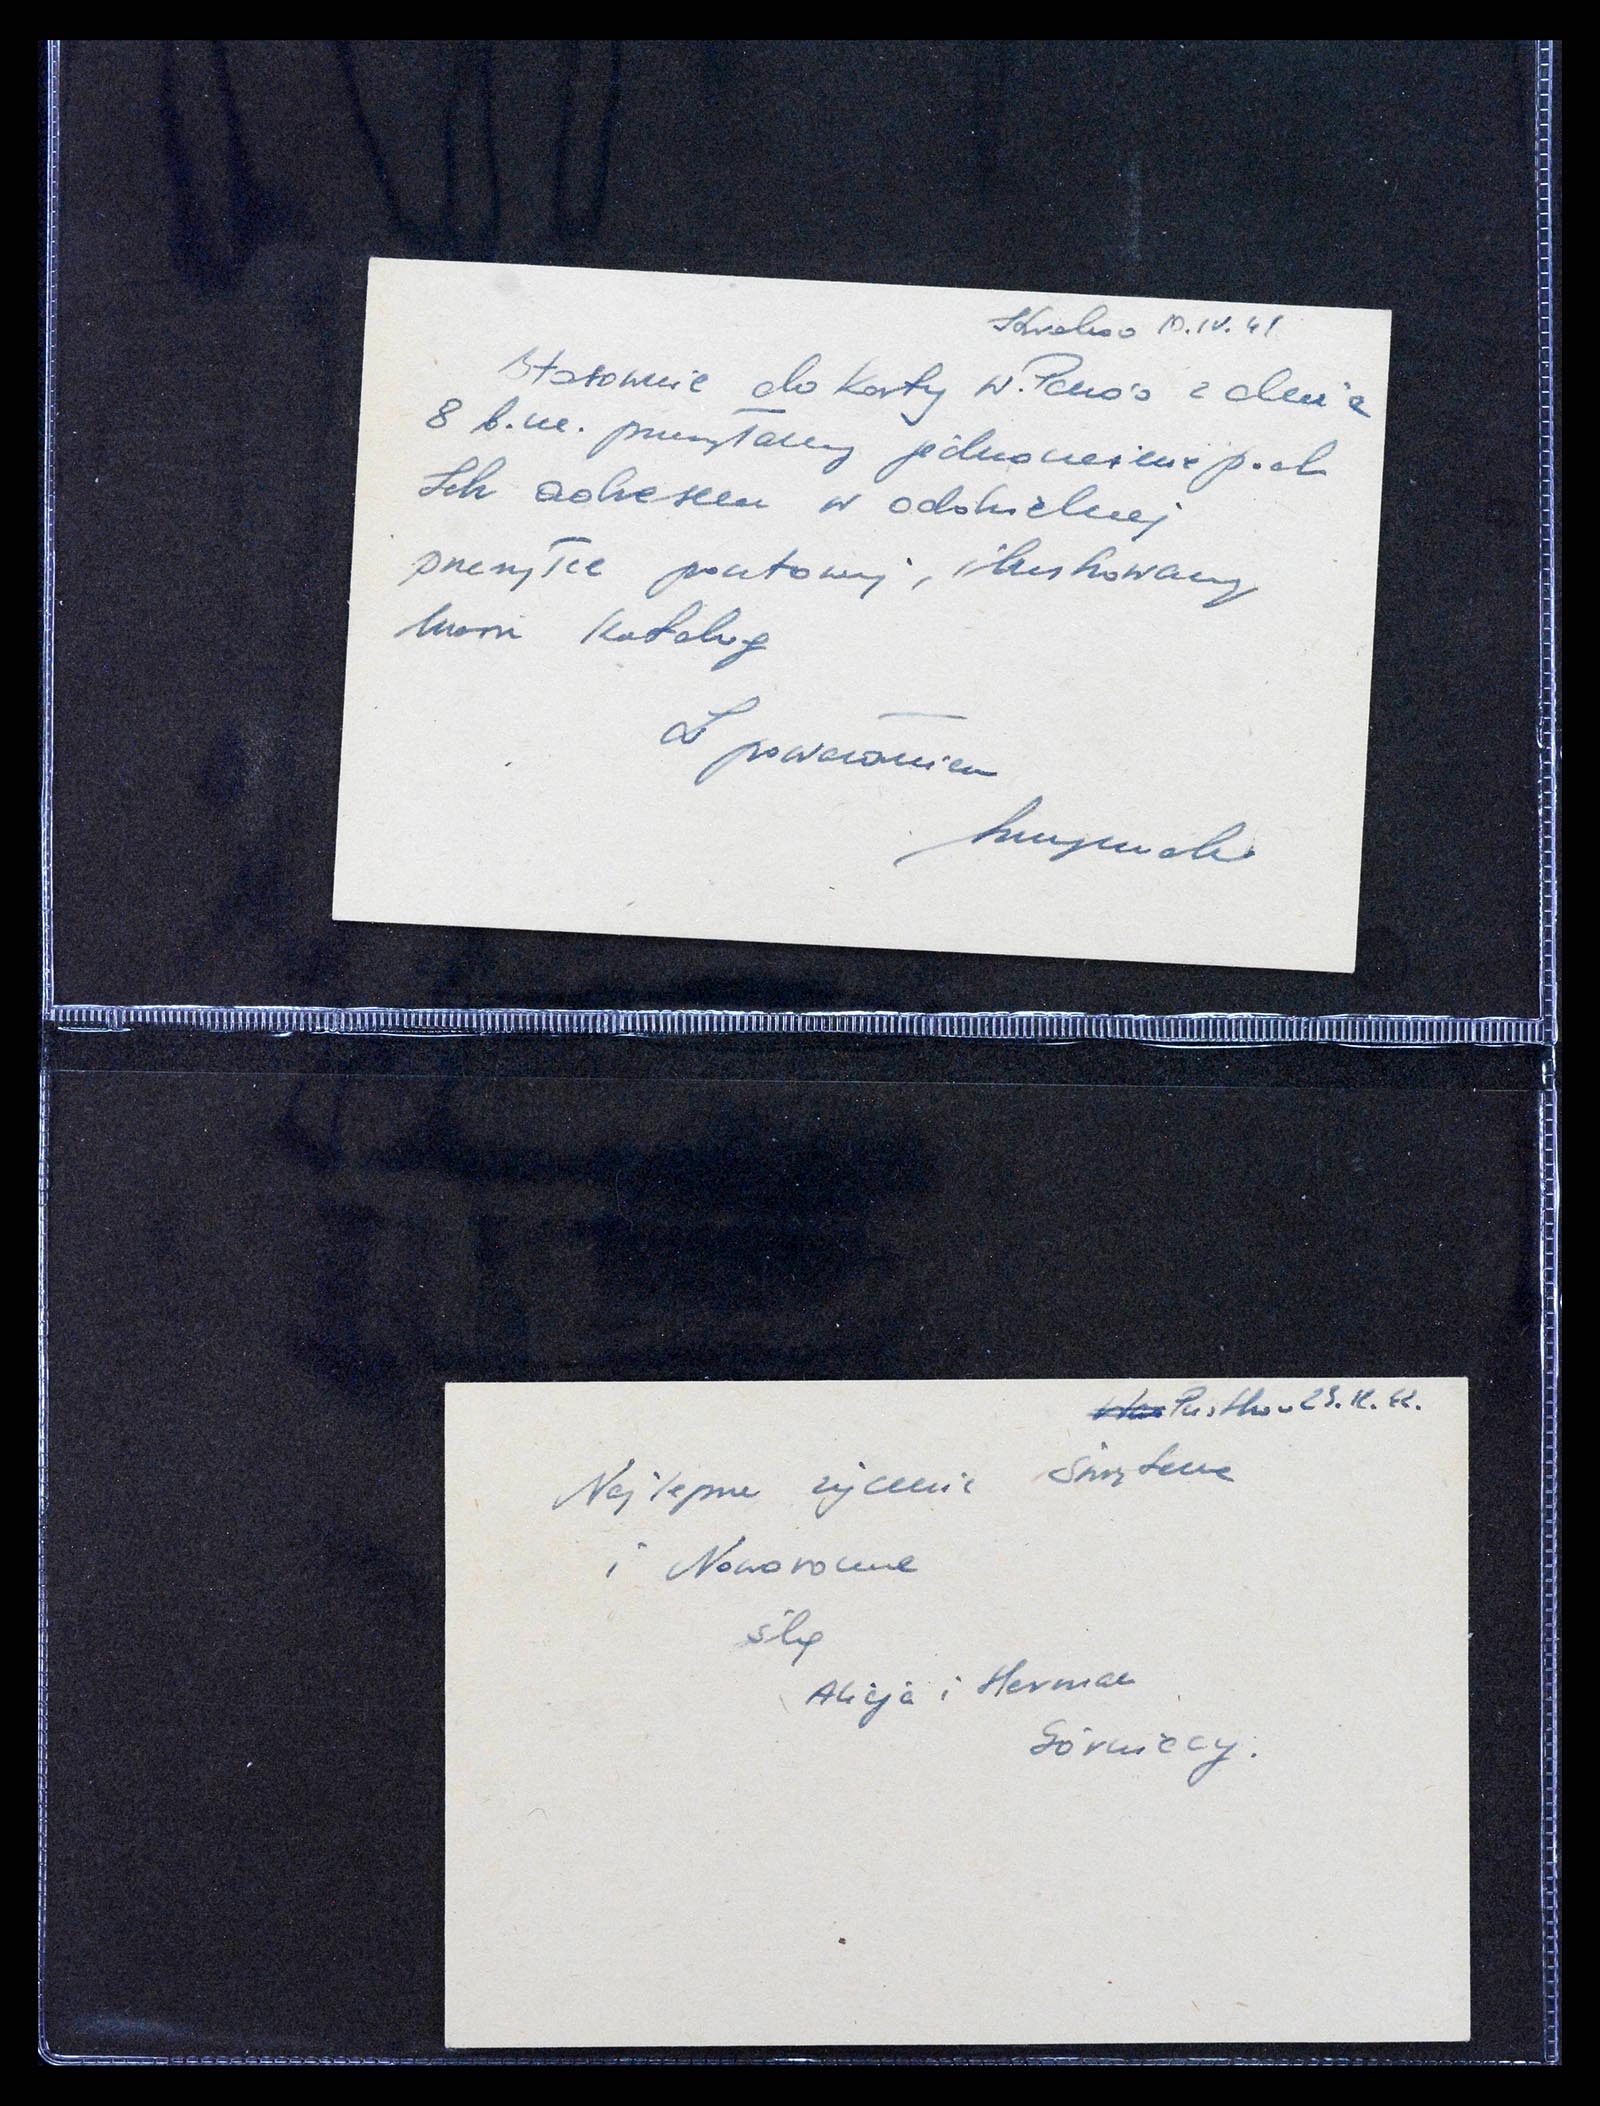 Kraków 10.IV.41
Stosownie do Karty W.Panów z dnia
8 b.m. przesyłamy jednocześnie pod
Ich adresem w oddzielnej
przesyłce pocztowej, ilustrowany
nasz Katalog
Z poważaniem
Pustków 23.XII.42.
Najlepsze życzenia Świąteczne
i Noworoczne
ślą
Alicja i Herman
Górniccy.